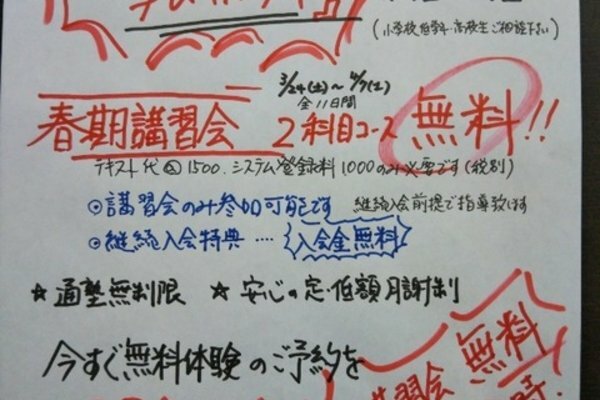 (小学校低学年・高校生ご相談下さい)
3/24(土)〜4/7(土)
全11日間
春期講習会 2科目コース 無料!!
テキスト代 1500、システム登録料1000のみ必要です(税別)
◎講習会のみ参加可能です 継続入会前提で指導致します
◎継続入会特典‥‥入会金無料
☆通塾無制限 ☆安心の定・低額月謝制
今すぐ無料体験のご予約を
講習会 無料
時